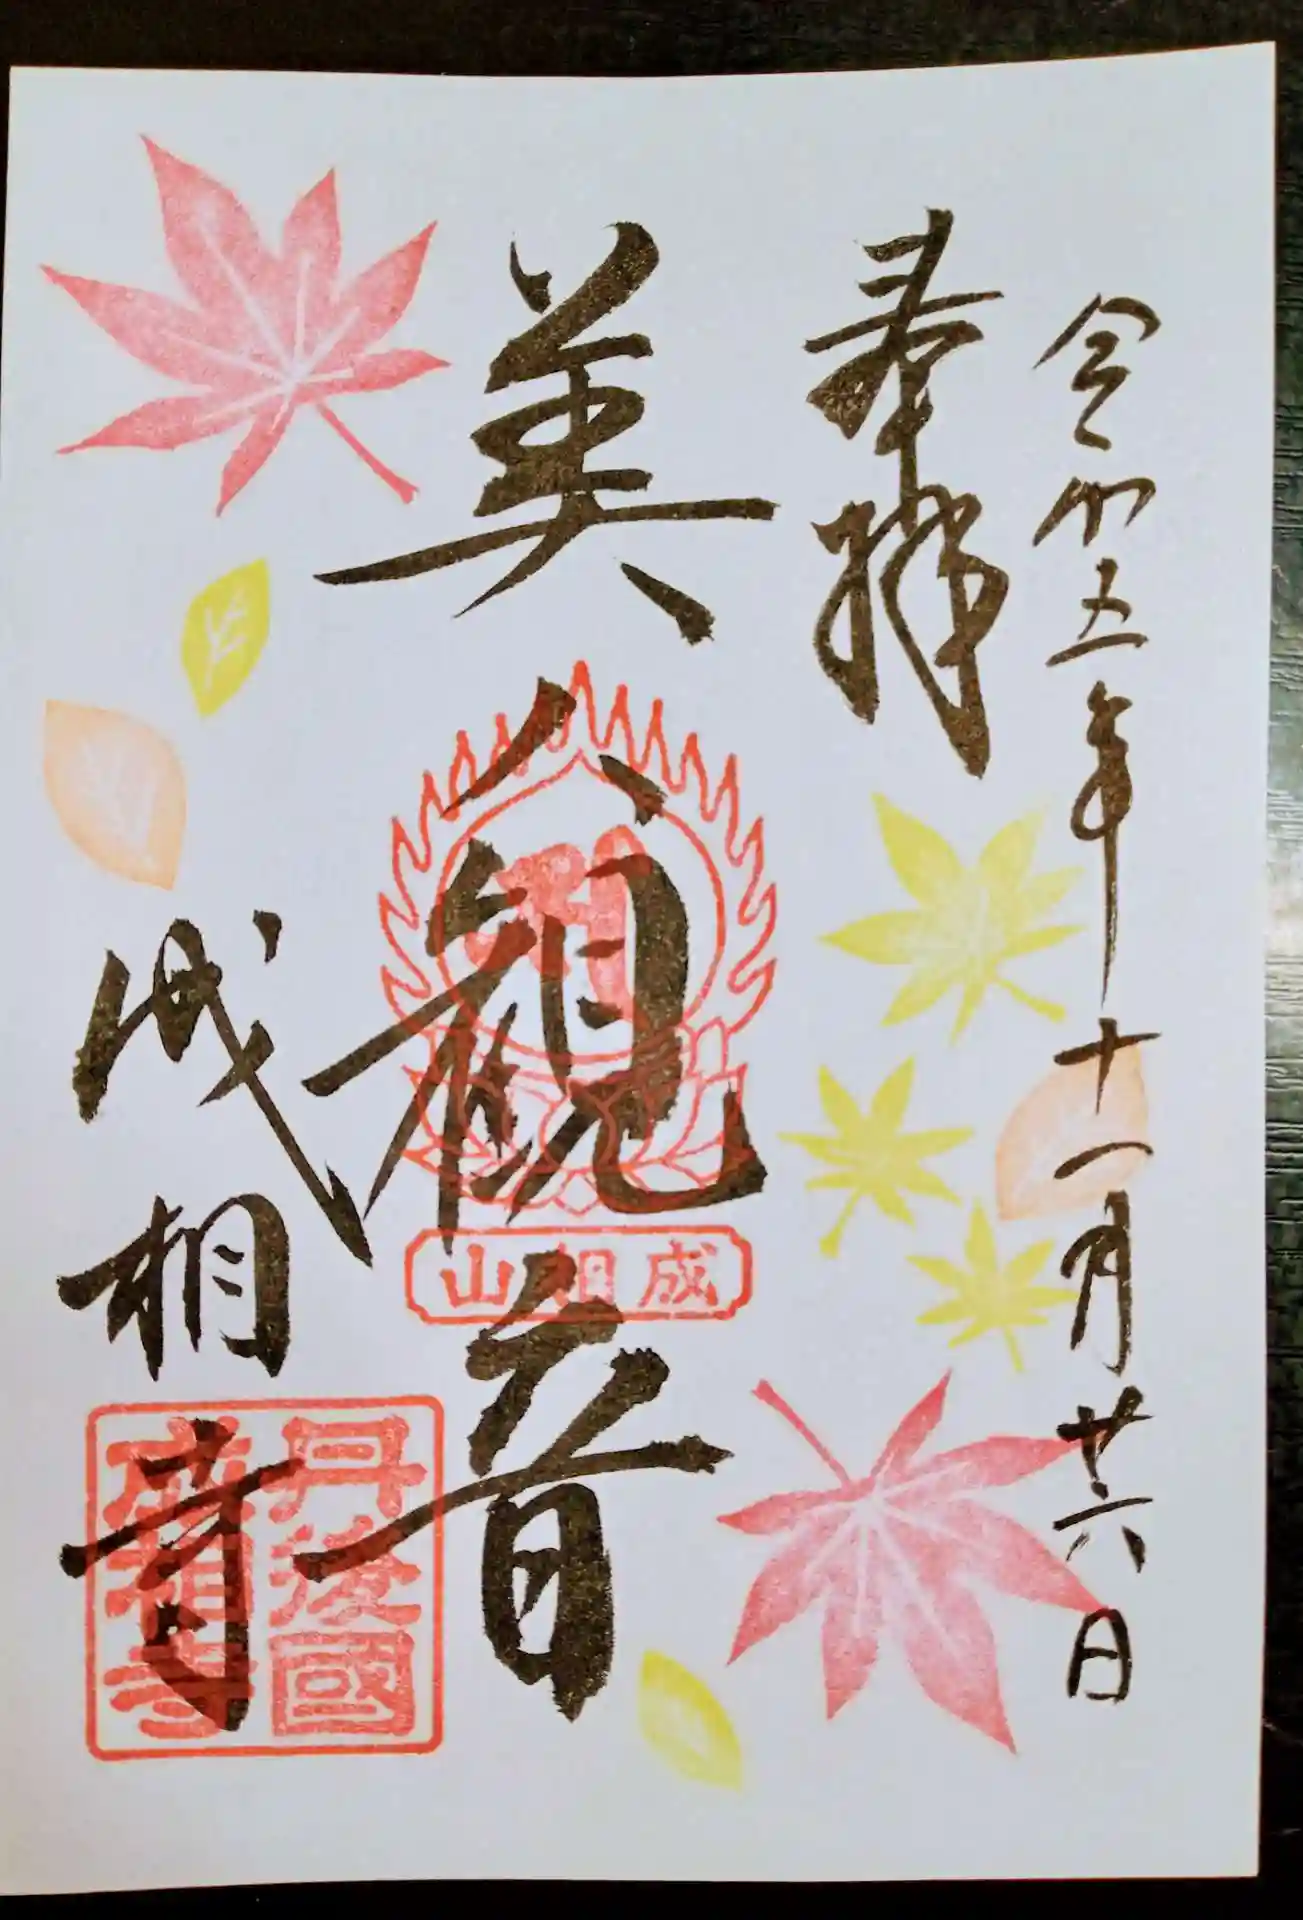 令和五年十一月廿六日
奉拝
美人観音
成相山
成相寺
丹後國
成相寺